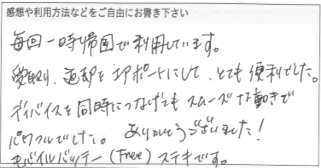 感想や利用方法などをご自由にお書き下さい
毎回一時帰国で利用しています。
受取り、返却を空ポートにして、とても便利でした。
ディバイスを同時につなげてもスムーズな動きで
パワフルでした。ありがとうございました!
モバイルバッテリー(Free)ステキです。